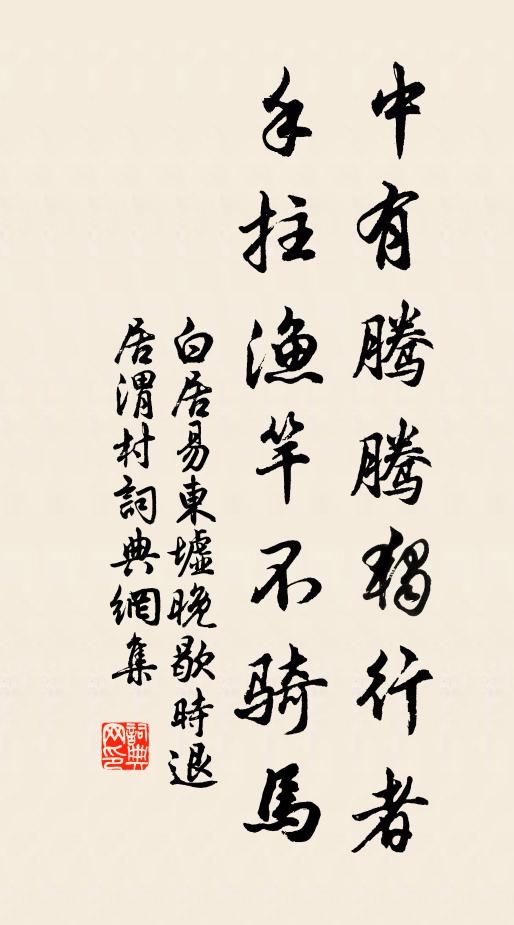 中有騰騰獨行者
手拄漁竿不騎馬
白居易東墟晚歇時退
居渭村詞典網集
詞典
网印